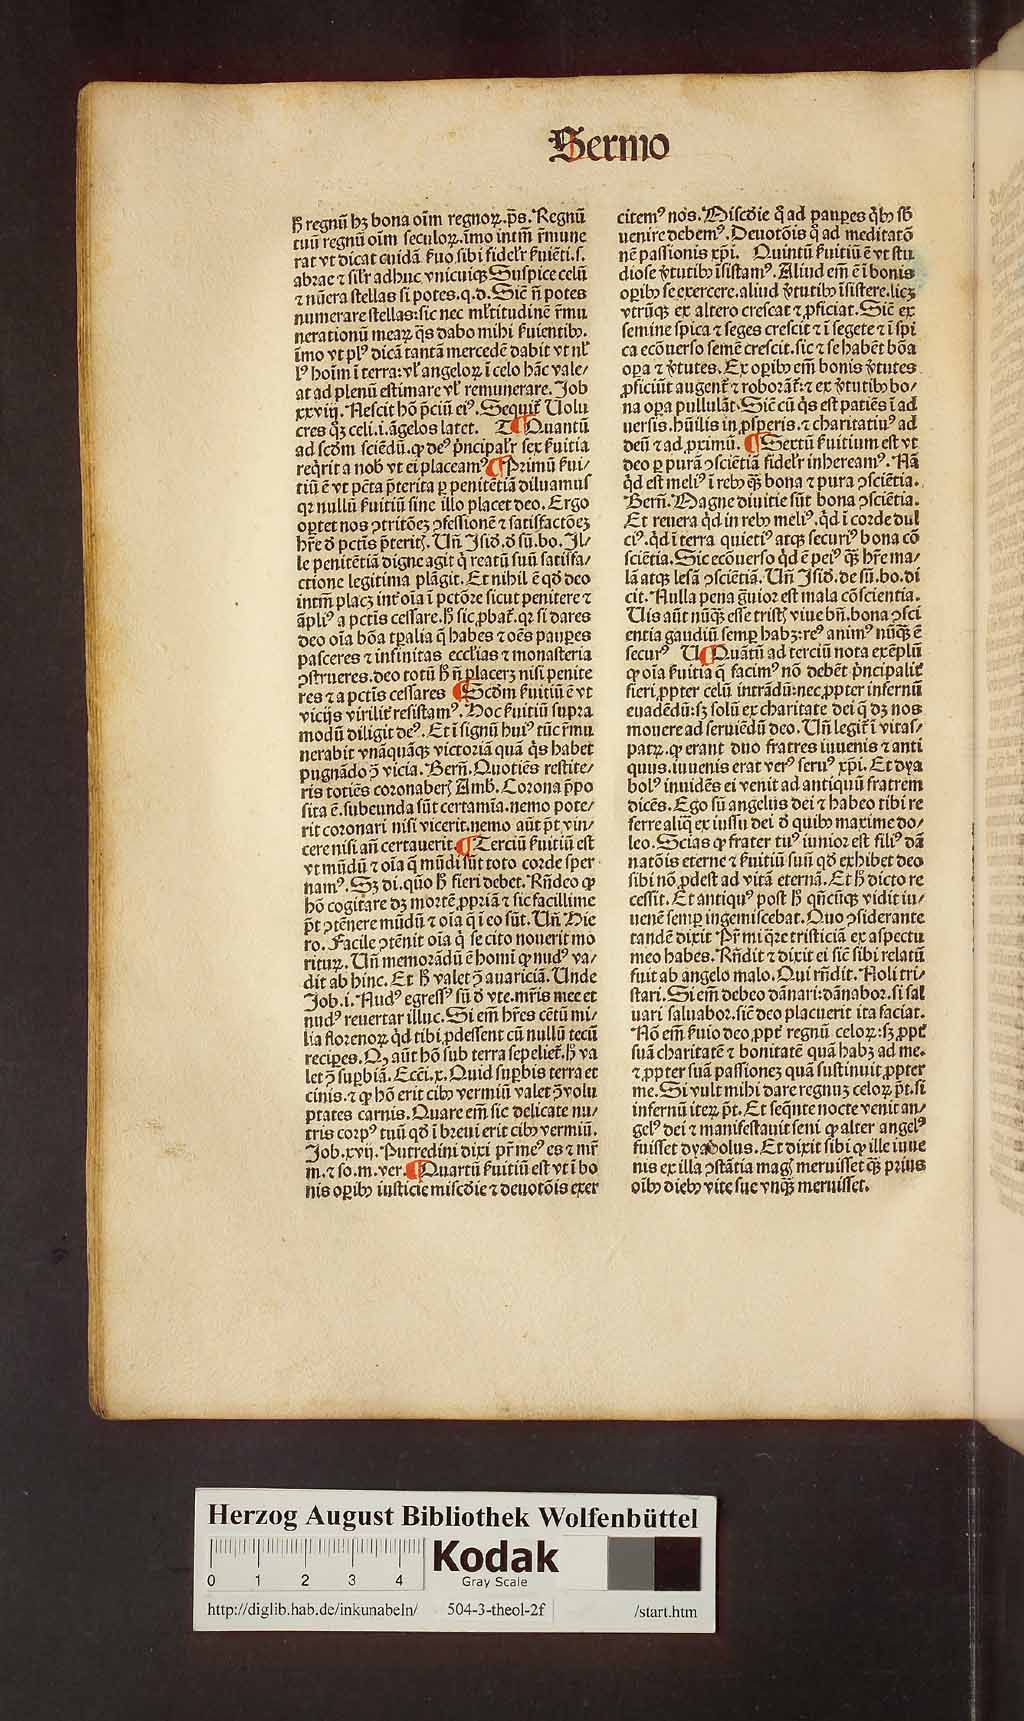 Sermo
hͦ regnũ hʒ bona oĩm regnoꝝ. p̃s. Regnũ
tuũ regnũ oĩm seculoꝝ. ĩmo intm̃ r̃mune
rat vt dicat cuidã ẜuo sibi fideľr ẜuiẽti .s.
abrae ⁊ siľr adhuc vnicuiqꝫ Suspice celũ
⁊ nũera stellas si potes. q.d. Sič ñ potes
numerare stellas: sic nec mľtitudinẽ r̃mu
nerationũ meaꝝ q̃s dabo mihi ẜuientibꝰ.
ĩmo vt plꝰ dicã tantã mercedẽ dabit vt nľ
lꝰ hoĩm ĩ terra: vľ angeloꝝ ĩ celo hãc vale⸗
at ad plenũ estimare vľ remunerare. Job
xxviij. Nescit hõ p̃ciũ eiꝰ. Sequit̃ Uolu
cres qꝫ celi .i. ãgelos latet. T ¶ Quantũ
ad scďm sciẽdũ. ꝙ deꝰ p̃ncipaľr sex ẜuitia
req̃rit a nob̃ vt ei placeamꝰ ¶ Primũ ẜui⸗
tiũ ẽ vt pc̃ta p̃terita ꝑ penitẽtiã diluamus
qꝛ nullũ ẜuitiũ sine illo placet deo. Ergo
oꝑtet nos ↄtritõeʒ ↄfessionẽ ⁊ satisfactõeʒ
hr̃e ď pctĩs p̃teritꝭ. Uñ Isiď. ď sũ. bo. Il⸗
le penitẽtiã digne agit q̃ reatũ suũ satisfa⸗
ctione legitima plãgit. Et nihil ẽ qď deo
intm̃ placꝫ int̃ oĩa ĩ pctõre sicut penitere ⁊
ãpliꝰ a pctĩs cessare. hͦ sic ꝓbat̃. qꝛ si dares
deo oĩa bõa tꝑalia q̃ habes ⁊ oẽs pauꝑes
pasceres ⁊ infinitas eccľias ⁊ monasteria
ↄstrueres. deo totũ hͦ ñ placerꝫ nisi penite
res ⁊ a pctĩs cessares ¶ Scďm ẜuitiũ ẽ vt
vicijs virilit̃ resistamꝰ. Hoc ẜuitiũ supra
modũ diligit deꝰ. Et ĩ signũ huiꝰ tũc r̃mu
nerabit vnãquãqꝫ victoriã quã q̃s habet
pugnãdo ↄ̃ vicia. Berñ. Quotiẽs restite⸗
ris totiẽs coronaberꝭ Amb. Corona p̃po
sita ẽ. subeunda sũt certamĩa. nemo pote⸗
rit coronari nisi vicerit. nemo aũt p̃t vin⸗
cere nisi añ certauerit. ¶ Terciũ ẜuitiũ est
vt mũdũ ⁊ oĩa q̃ mũdi sũt toto corde sper
namꝰ. Sꝫ di. quõ hͦ fieri debet. Rñdeo ꝙ
hõ cogitare dꝫ mortẽ ꝓpriã ⁊ sic facillime
p̃t ↄtẽnere mũdũ ⁊ oĩa q̃ ĩ eo sũt. Uñ Hie
ro. Facile ↄtẽnit oĩa q̃ se cito nouerit mo
rituꝝ. Uñ memorãdũ ẽ homĩ ꝙ nudꝰ va⸗
dit ab hinc. Et hͦ valet ↄ̃ auariciã. Unde
Job .i. Nudꝰ egressꝰ sũ ď vte. mr̃is mee et
nudꝰ reuertar illuc. Si em̃ hr̃es cẽtũ mi⸗
lia florenoꝝ q̃d tibi ꝓdessent cũ nullũ tecũ
reciꝑes. Qꝫ aũt hõ sub terra sepeliet̃. hͦ va
let ↄ̃ suꝑbiã. Ecc̃i .x. Quid suꝑbis terra et
cinis. ⁊ ꝙ hõ erit cibꝰ vermiũ valet ↄ̃ volu
ptates carnis. Quare em̃ sic delicate nu⸗
tris corpꝰ tuũ qď ĩ breui erit cibꝰ vermiũ.
Job. xvij. Putredini dixi pr̃ meꝰ es ⁊ mr̃
m. ⁊ so. m. ver. ¶ Quartũ ẜuitiũ est vt ĩ bo
nis oꝑibꝰ iusticie mis̃cďie ⁊ deuotõis exer
citemꝰ nos. Mis̃cďie q̃ ad pauꝑes q̃bꝰ sb̃
uenire debemꝰ. Deuotõis q̃ ad meditatõ
nẽ passionis xp̃i. Quintũ ẜuitiũ ẽ vt stu
diose ṽtutibꝰ ĩsistamꝰ. Aliud em̃ ẽ ĩ bonis
oꝑibꝰ se exercere. aliud ṽtutibꝰ ĩsistere. licꝫ
vtrũqꝫ ex altero crescat ⁊ ꝓficiat. Sič ex
semine spica ⁊ seges crescit ⁊ ĩ segete ⁊ ĩ spi
ca ecõuerso semẽ crescit. sic ⁊ se habẽt bõa
oꝑa ⁊ ṽtutes. Ex oꝑibꝰ em̃ bonis ṽtutes
ꝓficiũt augent̃ ⁊ roborãt̃: ⁊ ex ṽtutibꝰ bo⸗
na oꝑa pullulãt. Sič cũ q̃s est patiẽs ĩ ad
uersis. hũilis in ꝓsꝑis. ⁊ charitatiuꝰ ad
deũ ⁊ ad ꝓximũ. ¶ Sextũ ẜuitium est vt
deo ꝑ purã ↄsciẽtiã fideľr inhereamꝰ. Nã
q̃d est meliꝰ ĩ rebꝰ qꝫ̃ bona ⁊ pura ↄsciẽtia.
Berñ. Magne diuitie sũt bona ↄsciẽtia.
Et reuera q̃d in rebꝰ meliꝰ. q̃d ĩ corde dul
ciꝰ. q̃d ĩ terra quietiꝰ atqꝫ securiꝰ bona cõ
sciẽtia. Sic ecõuerso q̃d ẽ peiꝰ qꝫ̃ hr̃e ma⸗
lã atqꝫ lesã ↄsciẽtiã. Uñ Isiď. de sũ. bo. di
cit. Nulla pena g̃uior est mala cõscientia.
Uis aũt nũqꝫ̃ esse tristꝭ viue bñ. bona ↄsci
entia gaudiũ semꝑ habꝫ: reꝰ animꝰ nũqꝫ̃ ẽ
securꝰ U ¶ Quãtũ ad terciũ nota exẽplũ
ꝙ oĩa ẜuitia q̃ facimꝰ nõ debẽt p̃ncipalit̃
fieri ꝓpter celũ intrãdũ: nec ꝓpter infernũ
euadẽdũ: sꝫ solũ ex charitate dei q̃ dꝫ nos
mouere ad seruiẽdũ deo. Uñ legit̃ ĩ vitas⸗
patꝝ. ꝙ erant duo fratres iuuenis ⁊ anti
quus. iuuenis erat verꝰ seruꝰ xp̃i. Et dya
bolꝰ inuidẽs ei venit ad antiquũ fratrem
dicẽs. Ego sũ angelus dei ⁊ habeo tibi re
ferre aliq̃ ex iussu dei ď quibꝰ maxime do⸗
leo. Scias ꝙ frater tuꝰ iunior est filiꝰ dã
natõis eterne ⁊ ẜuitiũ suũ qď exhibet deo
sibi nõ ꝓdest ad vitã eternã. Et hͦ dicto re
cessit. Et antiquꝰ post hͦ qñcũqꝫ vidit iu⸗
uenẽ semꝑ ingemiscebat. Quo ↄsiderante
tandẽ dixit Pr̃ mi q̃re tristiciã ex aspectu
meo habes. Rñdit ⁊ dixit ei sič sibi relatũ
fuit ab angelo malo. Qui rñdit. Noli tri⸗
stari. Si em̃ debeo dãnari: dãnabor. si sal
uari saluabor. sič deo placuerit ita faciat.
Nõ em̃ ẜuio deo ꝓpt̃ regnũ celoꝝ: sꝫ ꝓpt̃
suã charitatẽ ⁊ bonitatẽ quã habꝫ ad me.
⁊ ꝓpter suã passioneʒ quã sustinuit ꝓpter
me. Si vult mihi dare regnuʒ celoꝝ p̃t. si
infernũ iteꝝ p̃t. Et seq̃nte nocte venit an⸗
gelꝰ dei ⁊ manifestauit seni ꝙ alter angelꝰ
fuisset dyabolus. Et dixit sibi ꝙ ille iuue
nis ex illa ↄstãtia magꝭ meruisset qꝫ̃ prius
oĩbꝰ diebꝰ vite sue vnqꝫ̃ meruisset.
Herzog August Bibliothek Wolfenbüttel
0 1 2 3 4
Kodak
Gray Scale
http://diglib.hab.de/inkunabeln/ 504-3-theol-2f /start.htm